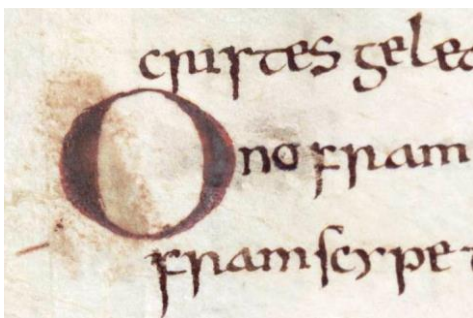 cristes gelea
Ono fram
framscype